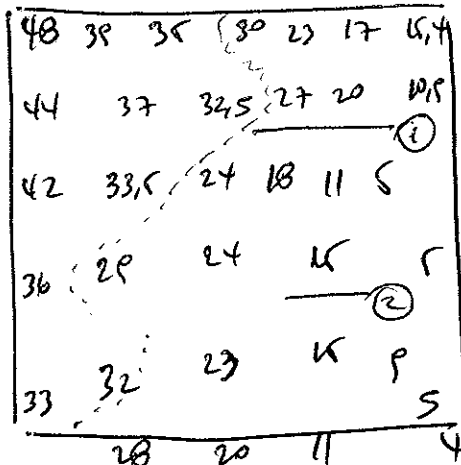 48 39 35 30 23 17 15,4
44 37 32,5 27 20 10,9
1
42 33,5 24 18 11 5
36 29 24 15 5
2
33 32 23 15 9
5
28 20 11 4